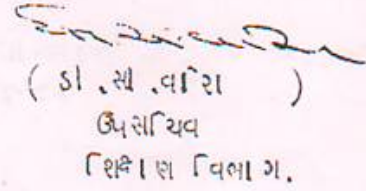 ( ડી.સી.વોરા )
ઉપસચિવ
શિક્ષણ વિભાગ.